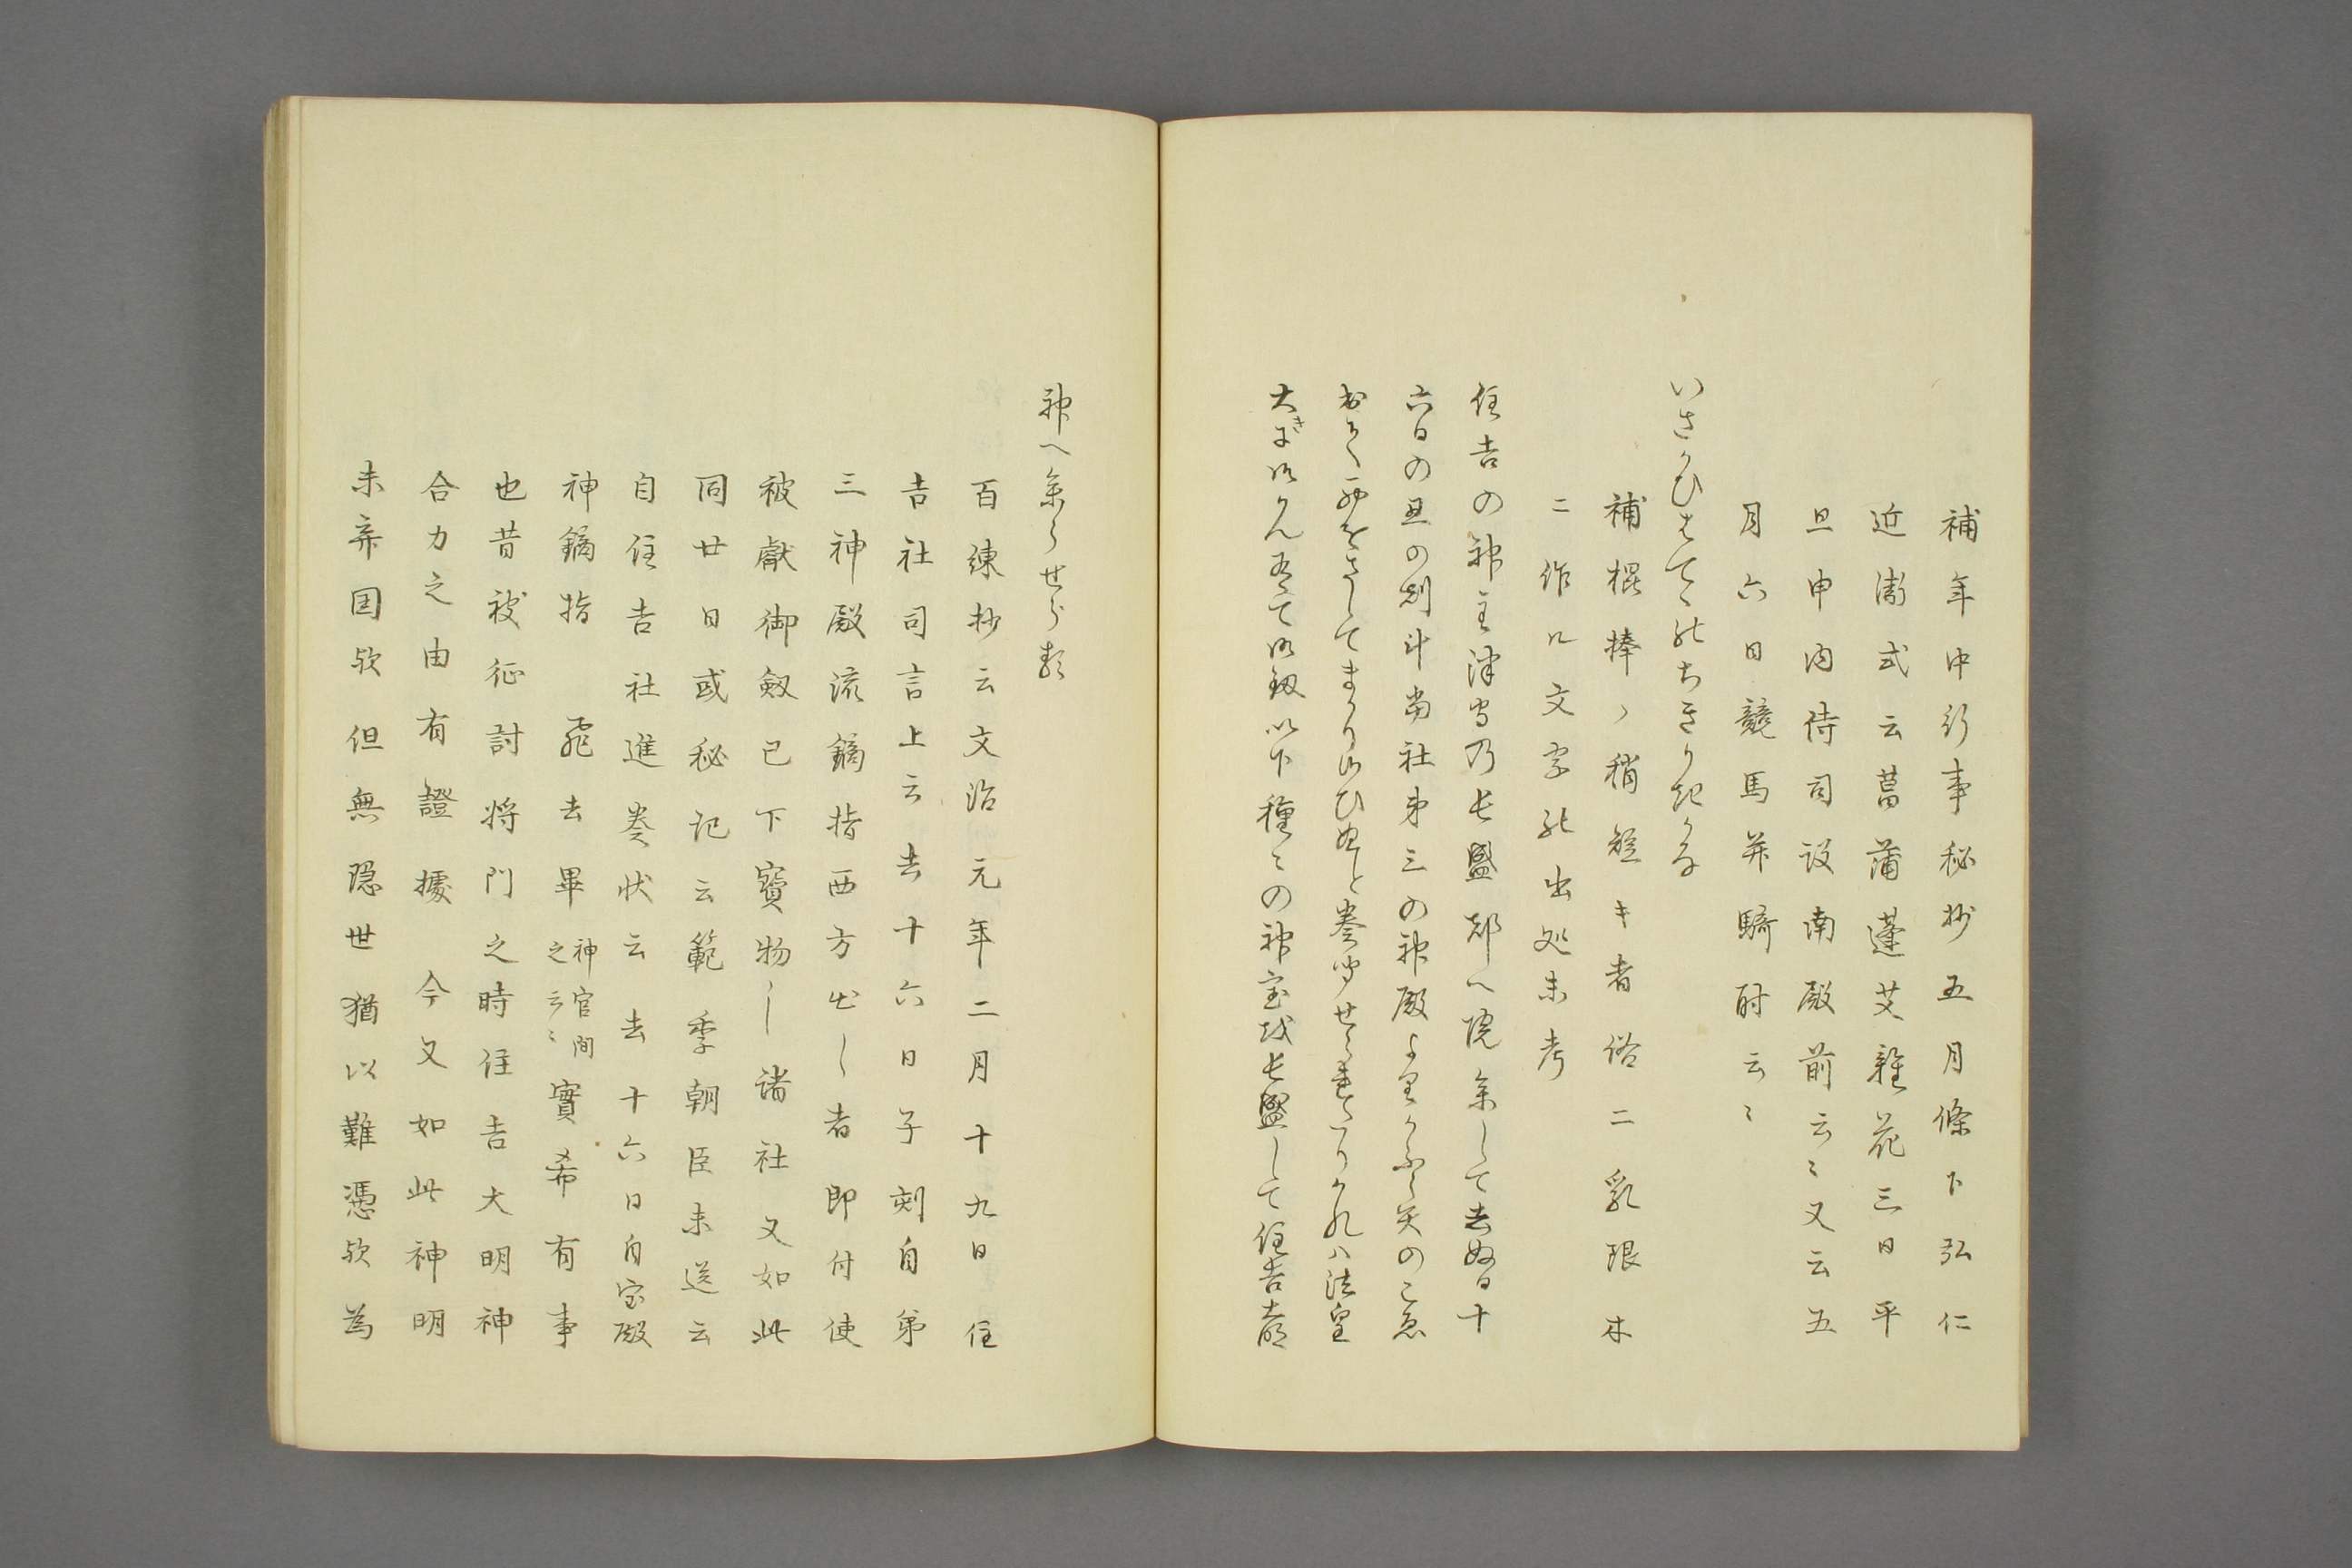 補年中行事秘抄五月條下弘仁
近衛式云菖蒲蓬艾雜花三日平
旦申内侍司設南殿前云〻又云五
月六日競馬并騎射云〻
いさかひはてゝのちきりきかな
補棍捧ノ稍短キ者俗ニ乳限木
ニ作ル文字の出処未考
住吉の神主津守乃長盛都へ院参して去ぬる十
六日の丑の剋斗當社第三の神殿よりかふら矢のこゑ
出てく西をさしてまかり候ひぬと奏聞せられたりけれハ法皇
大きに御かん有て御劔以下種〻の神宝越長盛して住吉大明
神へ参らせらる
百練抄云文治元年二月十九日住
吉社司言上云去十六日子剋自第
三神殿流鏑指西方出了者即付使
被獻御劔已下寳物了諸社又如此
同廿日或秘記云範季朝臣来送云
自住吉社進奏状云去十六日自宝殿
神鏑指 飛去畢神官聞之云〻實希有事
也昔被征討将門之時住吉大明神
合力之由有證據今又如此神明
未弃国欤但無隠世猶以難憑欤為